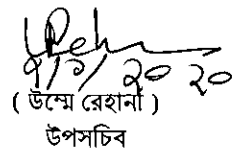 ২০২০
( উম্মে রেহানা )
উপসচিব